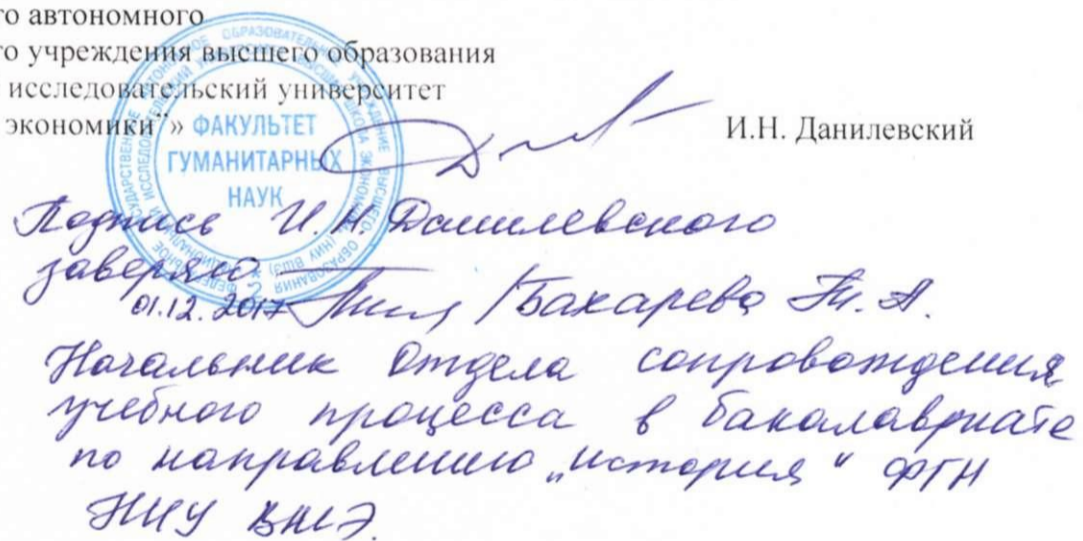 го автономного
го учреждения высшего образования
исследовательский университет
экономики”»
И.Н. Данилевский
ФАКУЛЬТЕТ
ГУМАНИТАРНЫХ
НАУК
Подпись И.Н. Данилевского
заверяю
01.12.2017 /Бахарева Т.А.
Начальник отдела сопровождения
учебного процесса в бакалавриате
по направлению „история“ ФГН
НИУ ВШЭ.